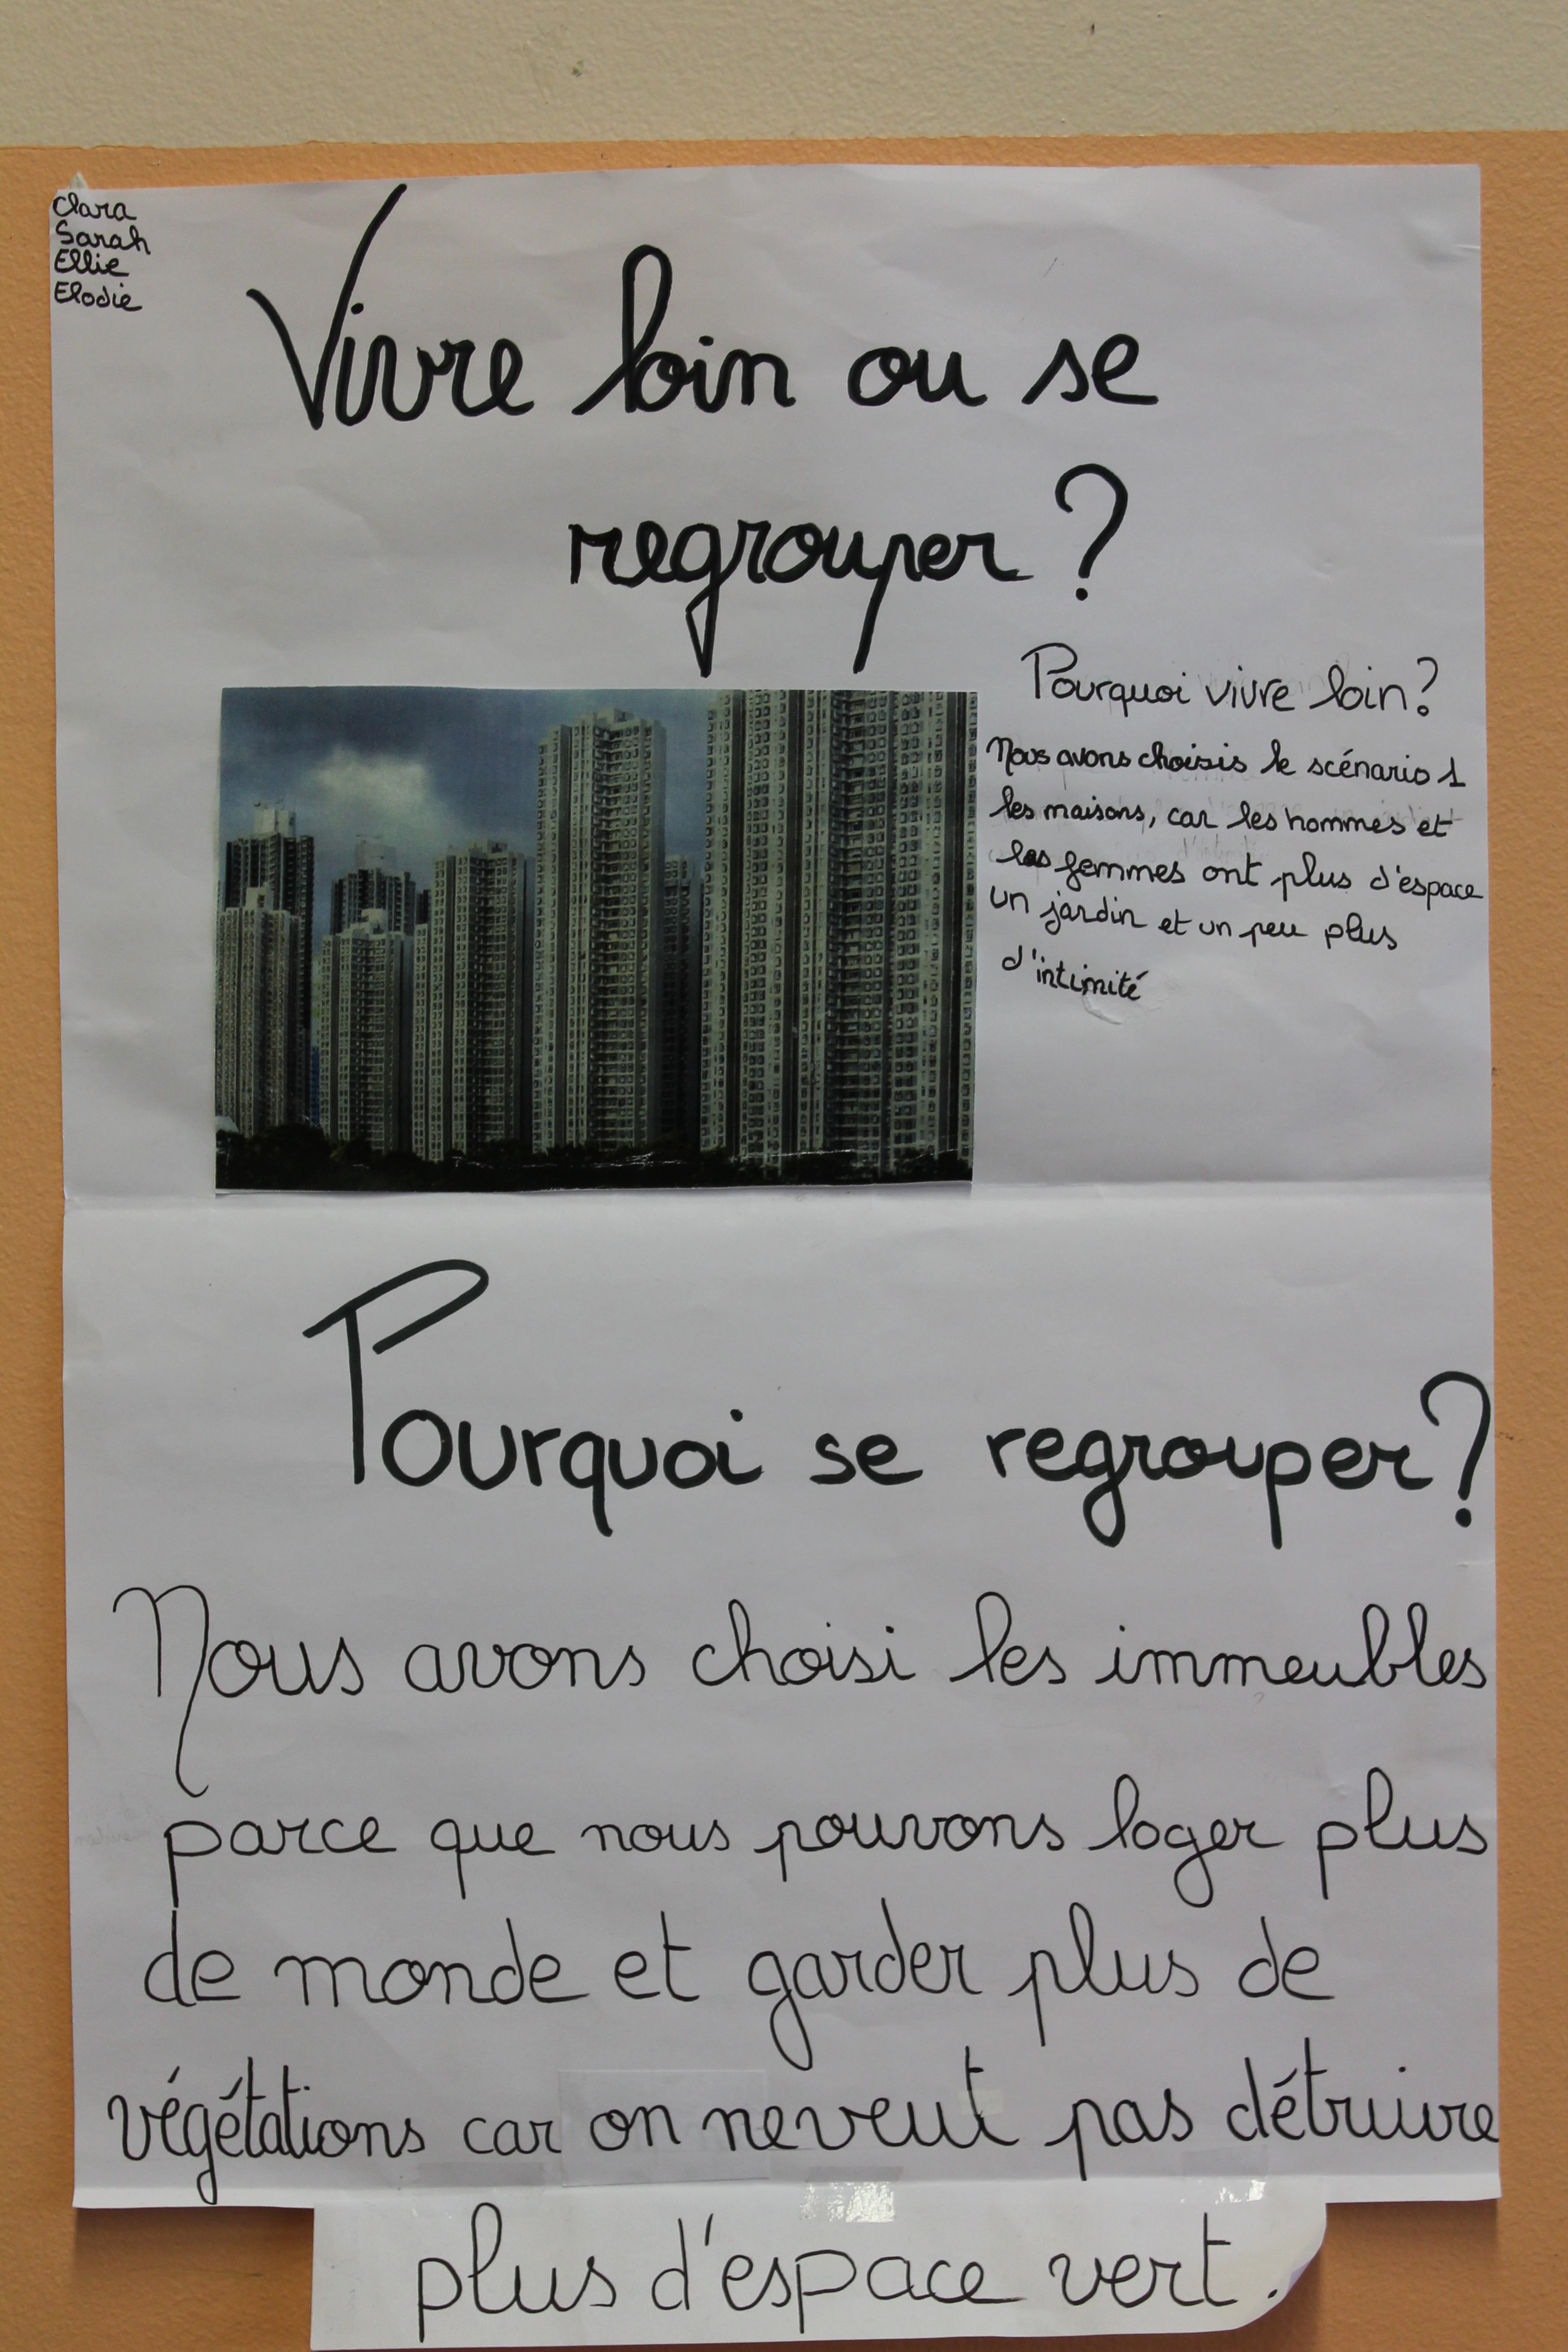 Clara
Sarah
Ellie
Elodie
Vivre loin ou se
regrouper ?
Pourquoi vivre loin ?
Nous avons choisis le scénario 1
les maisons, car les hommes et
les femmes ont plus d'espace
un jardin et un peu plus
d'intimité
Pourquoi se regrouper ?
Nous avons choisi les immeubles
parce que nous pouvons loger plus
de monde et garder plus de
végétations car on ne veut pas détruire
plus d'espace vert.